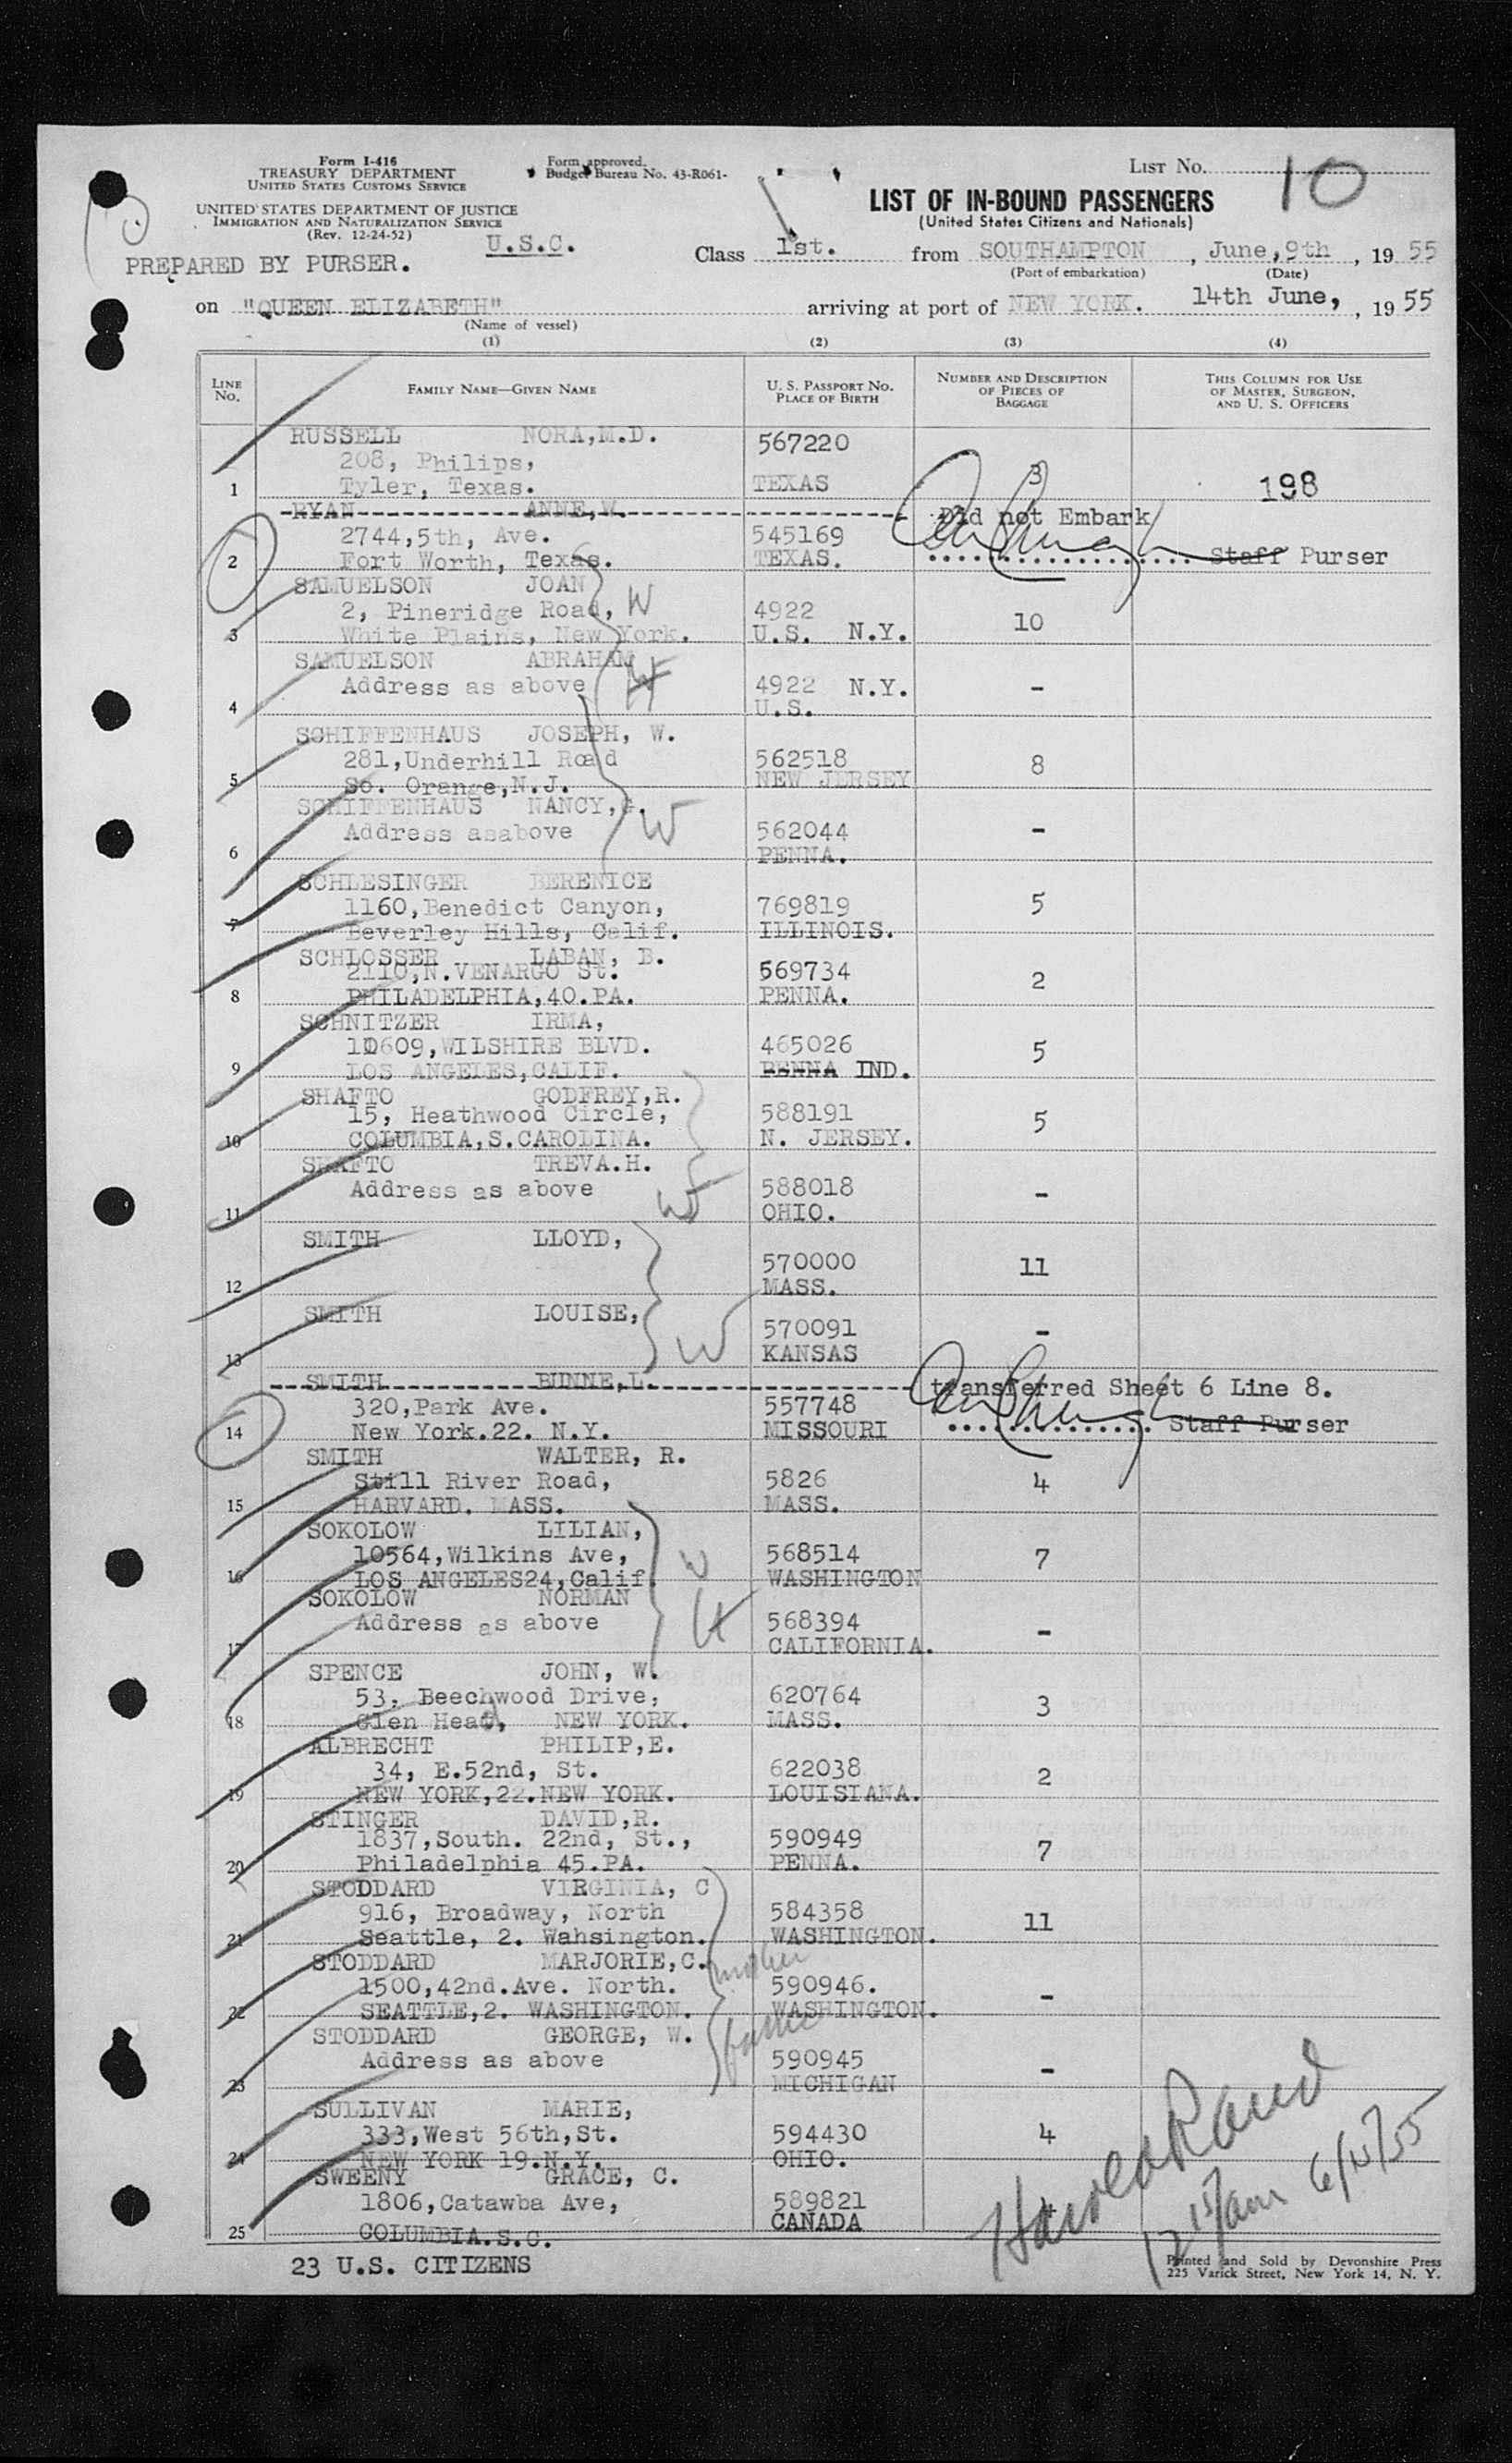 Form I-416
TREASURY DEPARTMENT
UNITED STATES CUSTOMS SERVICE
Form approved.
Budget Bureau No. 43-R061-
LIST No. 10
UNITED STATES DEPARTMENT OF JUSTICE
IMMIGRATION AND NATURALIZATION SERVICE
(Rev. 12-24-52)
LIST OF IN-BOUND PASSENGERS
(United States Citizens and Nationals)
U.S.C.
PREPARED BY PURSER.
Class 1st. from SOUTHAMPTON, June,9th, 19 55
(Port of embarkation) (Date)
on "QUEEN ELIZABETH" arriving at port of NEW YORK. 14th June, , 19 55
(Name of vessel)
(1) (2) (3) (4)
LINE No. FAMILY NAME—GIVEN NAME U. S. PASSPORT NO. PLACE OF BIRTH NUMBER AND DESCRIPTION OF PIECES OF BAGGAGE THIS COLUMN FOR USE OF MASTER, SURGEON, AND U. S. OFFICERS
RUSSELL NORA,M.D. 567220
208, Philips, 3
1 Tyler, Texas. TEXAS 198
RYAN ANNE,W. Did not Embark
2744,5th, Ave. 545169
2 Fort Worth, Texas. TEXAS. Staff Purser
SAMUELSON JOAN
2, Pineridge Road, W 4922 10
3 White Plains, New York. U.S. N.Y.
SAMUELSON ABRAHAM
Address as above H 4922 N.Y. -
4 U.S.
SCHIFFENHAUS JOSEPH, W.
281,Underhill Road 562518 8
5 So. Orange,N.J. NEW JERSEY
SCHIFFENHAUS NANCY,G.
Address asabove W 562044 -
6 PENNA.
SCHLESINGER BERENICE
1160,Benedict Canyon, 769819 5
7 Beverley Hills, Calif. ILLINOIS.
SCHLOSSER LABAN, B.
2110,N.VENARGO St. 569734 2
8 PHILADELPHIA,40.PA. PENNA.
SCHNITZER IRMA,
10609,WILSHIRE BLVD. 465026 5
9 LOS ANGELES,CALIF. PENNA IND.
SHAFTO GODFREY,R.
15, Heathwood Circle, 588191 5
10 COLUMBIA,S.CAROLINA. N. JERSEY.
SHAFTO TREVA.H.
Address as above W 588018 -
11 OHIO.
SMITH LLOYD,
570000 11
12 MASS.
SMITH LOUISE,
W 570091 -
13 KANSAS
SMITH BUNNE,L. transferred Sheet 6 Line 8.
320,Park Ave. 557748
14 New York.22. N.Y. MISSOURI Staff Purser
SMITH WALTER, R.
Still River Road, 5826 4
15 HARVARD. MASS. MASS.
SOKOLOW LILIAN,
10564,Wilkins Ave, W 568514 7
16 LOS ANGELES24,Calif. WASHINGTON
SOKOLOW NORMAN
Address as above H 568394 -
17 CALIFORNIA.
SPENCE JOHN, W.
53, Beechwood Drive, 620764 3
18 Glen Head, NEW YORK. MASS.
ALBRECHT PHILIP,E.
34, E.52nd, St. 622038 2
19 NEW YORK,22.NEW YORK. LOUISIANA.
STINGER DAVID,R.
1837,South. 22nd, St., 590949 7
20 Philadelphia 45.PA. PENNA.
STODDARD VIRGINIA, C
916, Broadway, North 584358 11
21 Seattle, 2. Wahsington. WASHINGTON.
STODDARD MARJORIE,C. mother
1500,42nd.Ave. North. 590946. -
22 SEATTLE,2. WASHINGTON. WASHINGTON.
STODDARD GEORGE, W. father
Address as above 590945 -
23 MICHIGAN
SULLIVAN MARIE,
333,West 56th,St. 594430 4
24 NEW YORK 19.N.Y. OHIO.
SWEENY GRACE, C.
1806,Catawba Ave, 589821
25 COLUMBIA.S.C. CANADA
23 U.S. CITIZENS
Harold Rand
Printed and Sold by Devonshire Press
225 Varick Street, New York 14, N. Y.